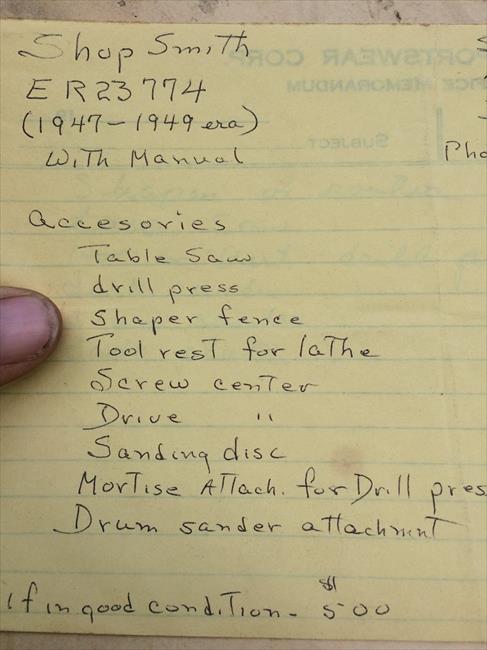 Shop Smith
ER23774
(1947-1949 era)
With Manual
Pho
Accesories
Table Saw
drill press
Shaper fence
Tool rest for lathe
Screw center
Drive "
Sanding disc
Mortise Attach. for Drill pres
Drum sander attachmnt
if in good condition - $500
PORTSWEAR CORP
ICE MEMORANDUM
SUBJECT